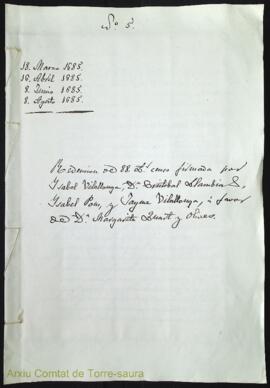 Nº 5.
18. Marzo 1685.
18. Abril 1685.
8. Junio 1685.
8. Agosto 1685.
Redencion de 88 Lˢ censo firmada por
Isabel Vilallonga, Dⁿ Cristobal
Isabel Pou, y Jayme Vilallonga, á favor
de Dª Margarita y Olives.
Arxiu Comtat de Torre-saura